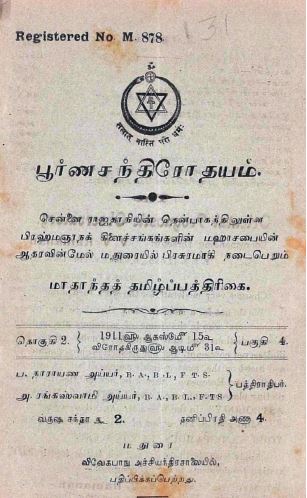 Registered No. M. 878.
131
ॐ
सत्यात् नास्ति परो धर्मः
பூர்ணசந்திரோதயம்.
சென்னை ராஜதானியின் தென்பாகத்திலுள்ள
பிரஹ்மஞானக் கிளைச்சங்கங்களின் மஹாசபையின்
ஆதரவின்மேல் மதுரையில் பிரசுரமாகி நடைபெறும்
மாதாந்தத் தமிழ்ப்பத்திரிகை.
தொகுதி 2. 1911௵ ஆகஸ்டு௴ 15௳ பகுதி 4.
விரோதகிருது௵ ஆடி௴ 31௳
ப. நாராயண அய்யர், B. A., B. L., F. T. S.
அ. ரங்கஸ்வாமி அய்யர், B. A., B. L., F. T. S. பத்திராதிபர்.
வருஷ சந்தா ரூ. 2. தனிப்பிரதி அணா 4.
மதுரை
விவேகபாநு அச்சியந்திரசாலையில்,
பதிப்பிக்கப்பெற்றது.